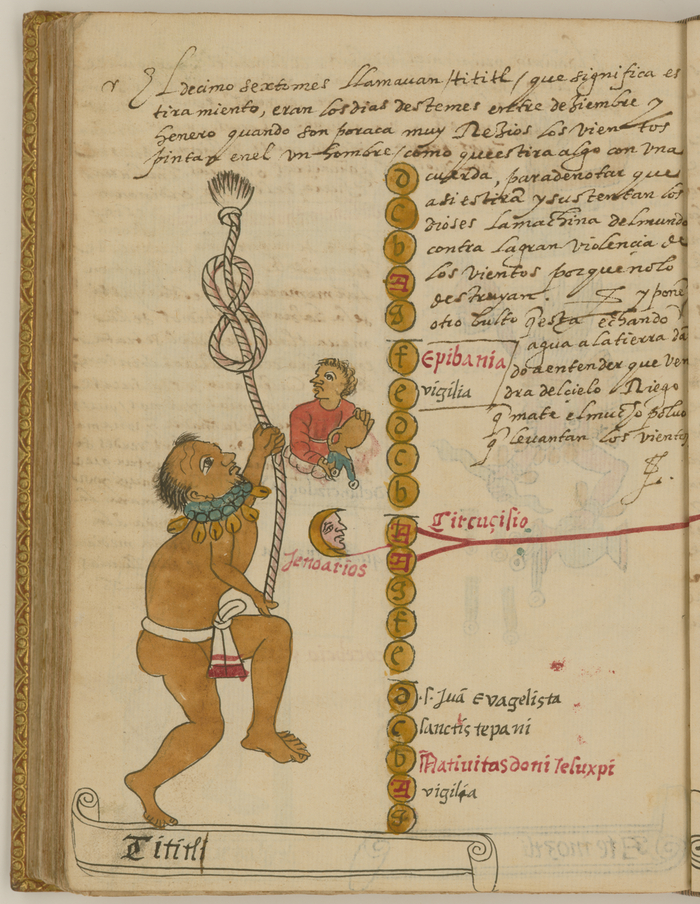 El decimo sextomes llamauan /tititl/ que significa es
tira miento, eran los dias destemes entre deziembre y
henero quando son por aca muy Rezios los vientos
pintan en el vn hombre / como que estira algo con vna
cuerda, para denotar que
asi estirã y sustentan los
dioses la machina del mundo
contra la gran violencia de
los vientos porque no lo
destruyan. y pone
otro bulto q̃ esta echando
agua a la tierra dã
do a entender que ven
dra del cielo Riego
q̃ mate el mucho poluo
q̃ leuantan los vientos
d
c
b
A
g
f Epibania
e vigilia
d
c
b
A Circuçisio
A
Jenoarios
g
f
e
d .s. Juã Evagelista
c sanctistepani
b Natiuitas doni Jeluxpi
A vigilia
g
Tititl